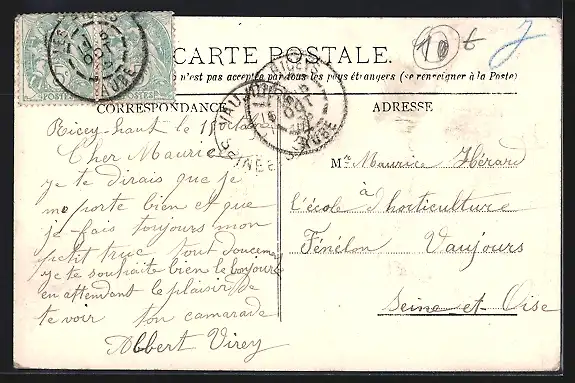 CARTE POSTALE.
n'est pas acceptée par tous les pays étrangers (se renseigner à la Poste)
CORRESPONDANCE
ADRESSE
Ricey-haut le 15
Cher Maurice
je te dirais que je
me porte bien et que
je fais toujours mon
petit truc tout doucement
je te souhaite bien le bonjour
en attendant le plaisir de
te voir ton camarade
Albert Virey
Mr Maurice Hérard
à
l'école d'horticulture
Fénélon Vaujours
Seine-et-Oise
10 f
POSTES
AUBE
RICEYS
AUBE